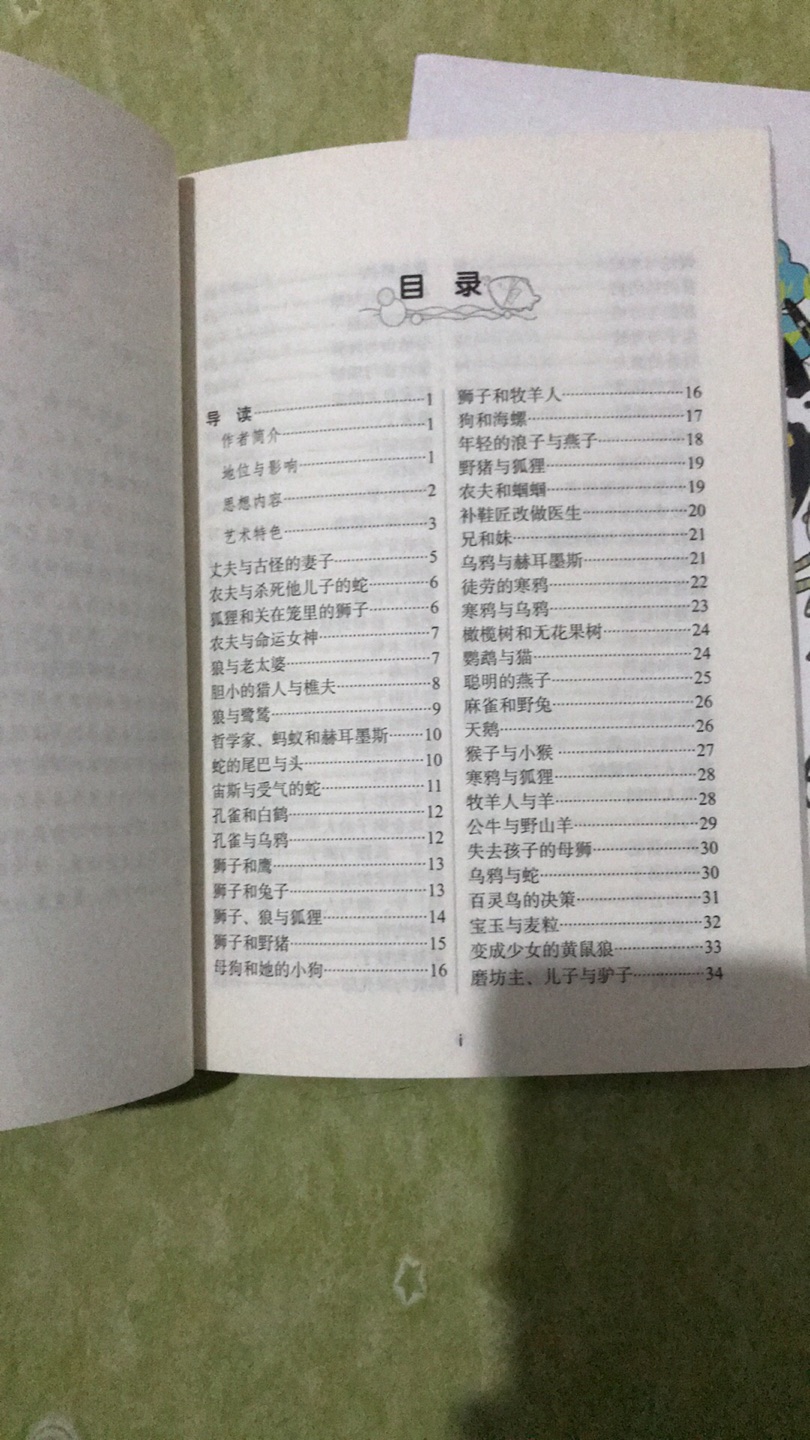 目 录
导 读 1
作者简介 1
地位与影响 1
思想内容 2
艺术特色 3
丈夫与古怪的妻子 5
农夫与杀死他儿子的蛇 6
狐狸和关在笼里的狮子 6
农夫与命运女神 7
狼与老太婆 7
胆小的猎人与樵夫 8
狼与鹭鸶 9
哲学家、蚂蚁和赫耳墨斯 10
蛇的尾巴与头 10
宙斯与受气的蛇 11
孔雀和白鹤 12
孔雀与乌鸦 12
狮子和鹰 13
狮子和兔子 13
狮子、狼与狐狸 14
狮子和野猪 15
母狗和她的小狗 16
狮子和牧羊人 16
狗和海螺 17
年轻的浪子与燕子 18
野猪与狐狸 19
农夫和蝈蝈 19
补鞋匠改做医生 20
兄和妹 21
乌鸦与赫耳墨斯 21
徒劳的寒鸦 22
寒鸦与乌鸦 23
橄榄树和无花果树 24
鹦鹉与猫 24
聪明的燕子 25
麻雀和野兔 26
天鹅 26
猴子与小猴 27
寒鸦与狐狸 28
牧羊人与羊 28
公牛与野山羊 29
失去孩子的母狮 30
乌鸦与蛇 30
百灵鸟的决策 31
宝玉与麦粒 32
变成少女的黄鼠狼 33
磨坊主、儿子与驴子 34
i